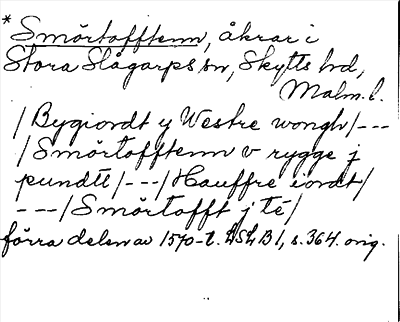 * Smörtofftenn, åkrar i
Stora Slågarps sn, Skytts hd,
Malm. l.
/Bygiordt y Westre wongh/---
/Smörtofftenn v rygge j
pundtt/---/Hauffre iordt/
---/Smörtofft j té/
förra delen av 1570-t. LSLB1, s. 364. orig.